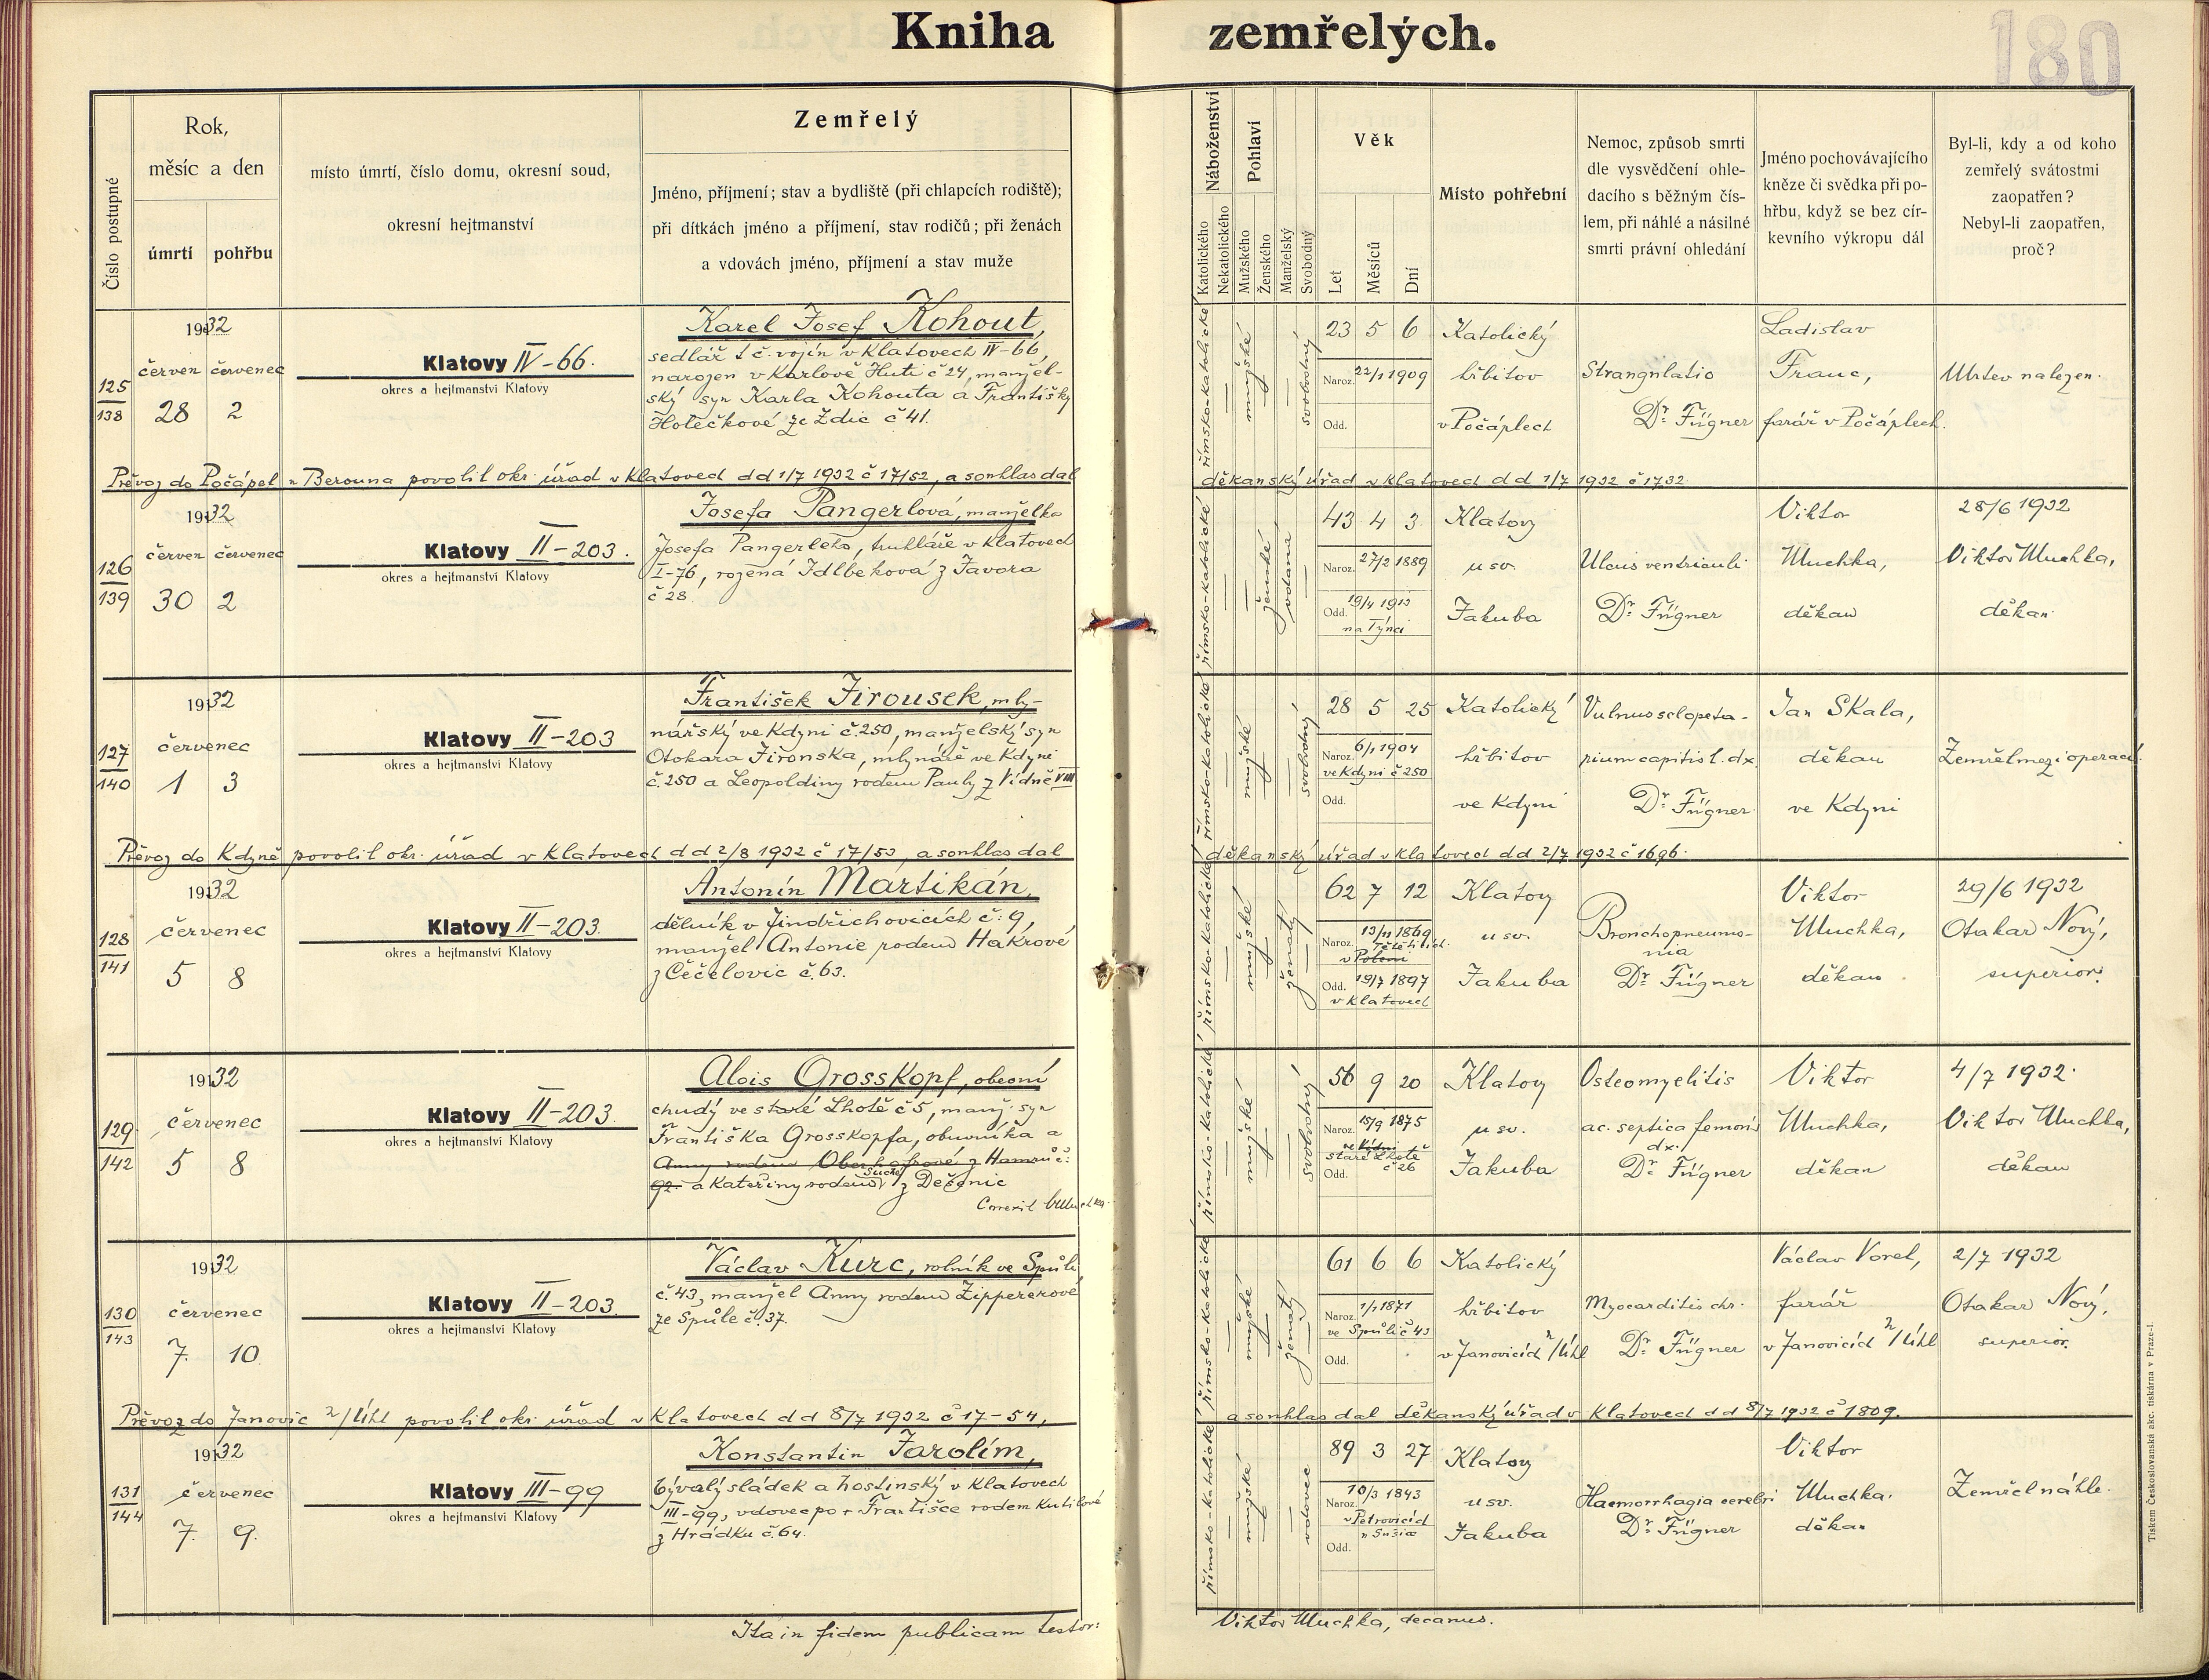 Kniha zemřelých.
180
Číslo postupné
Rok,
měsíc a den
úmrtí pohřbu
místo úmrtí, číslo domu, okresní soud,
okresní hejtmanství
Zemřelý
Jméno, příjmení; stav a bydliště (při chlapcích rodiště);
při dítkách jméno a příjmení, stav rodičů; při ženách
a vdovách jméno, příjmení a stav muže
Náboženství
Katolického
Nekatolického
Pohlaví
Mužského
Ženského
Manželský
Svobodný
Věk
Let
Měsíců
Dní
Místo pohřební
Nemoc, způsob smrti
dle vysvědčení ohle-
dacího s běžným čís-
lem, při náhlé a násilné
smrti právní ohledání
Jméno pochovávajícího
kněze či svědka při po-
hřbu, když se bez cír-
kevního výkropu dál
Byl-li, kdy a od koho
zemřelý svátostmi
zaopatřen?
Nebyl-li zaopatřen,
proč?
125
138
1932
červen červenec
28 2
Klatovy IV-66.
okres a hejtmanství Klatovy
Karel Josef Kohout,
sedlář t. č. vojín v Klatovech IV-66,
narozen v Karlově Huti č 24, manžel-
ský syn Karla Kohouta a Františky
Holečkové ze Zdic č 41.
římsko-katolické
mužské
svobodný
23 5 6
Naroz. 22/1 1909
Odd.
Katolický
hřbitov
v Počáplech
Strangulatio
Dr. Fügner
Ladislav
Franc,
farář v Počáplech.
Mrtev nalezen.
Převoz do Počápel u Berouna povolil okr. úřad v Klatovech dd 1/7 1932 č 17/52, a souhlas dal
děkanský úřad v Klatovech dd 1/7 1932 č 1732.
126
139
1932
červen červenec
30 2
Klatovy II-203.
okres a hejtmanství Klatovy
Josefa Pangerlová, manželka
Josefa Pangerleho, truhláře v Klatovech
I-76, rozená Idlbeková z Javora
č 28.
římsko-katolické
ženské
vdaná
43 4 3
Naroz. 27/2 1889
Odd. 19/4 1913
na Týnci
Klatovy
u sv.
Jakuba
Ulcus ventriculi
Dr. Fügner
Viktor
Muchka,
děkan
28/6 1932
Viktor Muchka,
děkan
127
140
1932
červenec
1 3
Klatovy II-203
okres a hejtmanství Klatovy
František Jirousek, mly-
nářský ve Kdyni č. 250, manželský syn
Otokara Jirouska, mlynáře ve Kdyni
č. 250 a Leopoldiny rodem Pauly z Vídně VIII
římsko-katolické
mužské
svobodný
28 5 25
Naroz. 6/1 1904
ve Kdyni č 250
Odd.
Katolický
hřbitov
ve Kdyni
Vulnus sclopeta-
rium capitis l. dx.
Dr. Fügner
Jan Skala,
děkan
ve Kdyni
Zemřel mezi operací.
Převoz do Kdyně povolil okr. úřad v Klatovech dd 2/8 1932 č 17/53, a souhlas dal
děkanský úřad v Klatovech dd 2/7 1932 č 1696.
128
141
1932
červenec
5 8
Klatovy II-203.
okres a hejtmanství Klatovy
Antonín Martikán,
dělník v Jindřichovicích č. 9,
manžel Antonie rodem Hakrové
z Čečelovic č. 63.
římsko-katolické
mužské
ženatý
62 7 12
Naroz. 13/11 1869
v Poleni
Odd. 19/7 1897
v Klatovech
Klatovy
u sv.
Jakuba
Bronchopneumo-
nia
Dr. Fügner
Viktor
Muchka,
děkan
29/6 1932
Otakar Nový,
superior.
129
142
1932
červenec
5 8
Klatovy II-203.
okres a hejtmanství Klatovy
Alois Grosskopf, obecní
chudý ve staré Lhotě č 5, manž. syn
Františka Grosskopfa, obuvníka a
Anny rodem Oberhofrové z Hamrů č:
92. a Kateřiny rodem Suché z Dešenic
Correxit Muchka
římsko-katolické
mužské
svobodný
56 9 20
Naroz. 15/9 1875
staré Lhotě
č 26
Odd.
Klatovy
u sv.
Jakuba
Osteomyelitis
ac. septica femoris
dx.
Dr. Fügner
Viktor
Muchka,
děkan
4/7 1932.
Viktor Muchka,
děkan
130
143
1932
červenec
7. 10.
Klatovy II-203.
okres a hejtmanství Klatovy
Václav Kurc, rolník ve Spůli
č. 43, manžel Anny rodem Zippererové
ze Spůle č. 37.
římsko-katolické
mužské
ženatý
61 6 6
Naroz. 1/1 1871
ve Spůli č 43
Odd.
Katolický
hřbitov
v Janovicích n/Úhl
Myocarditis chr.
Dr. Fügner
Václav Vorel,
farář
v Janovicích n/Úhl
2/7 1932
Otakar Nový,
superior.
Převoz do Janovic n/Úhl povolil okr. úřad v Klatovech dd 8/7 1932 č 17-54,
a souhlas dal děkanský úřad v Klatovech dd 8/7 1932 č 1809.
131
144
1932
červenec
7. 9.
Klatovy III-99
okres a hejtmanství Klatovy
Konstantin Jarolím,
bývalý sládek a hostinský v Klatovech
III-99, vdovec po + Františce rodem Kutilové
z Hrádku č. 64.
římsko-katolické
mužské
vdovec
89 3 27
Naroz. 10/3 1843
v Petrovicích
u Sušice
Odd.
Klatovy
u sv.
Jakuba
Haemorrhagia cerebri
Dr. Fügner
Viktor
Muchka.
děkan
Zemřel náhle.
Ita in fidem publicam testor:
Viktor Muchka, decanus.
Tiskem Československá akc. tiskárna v Praze-I.